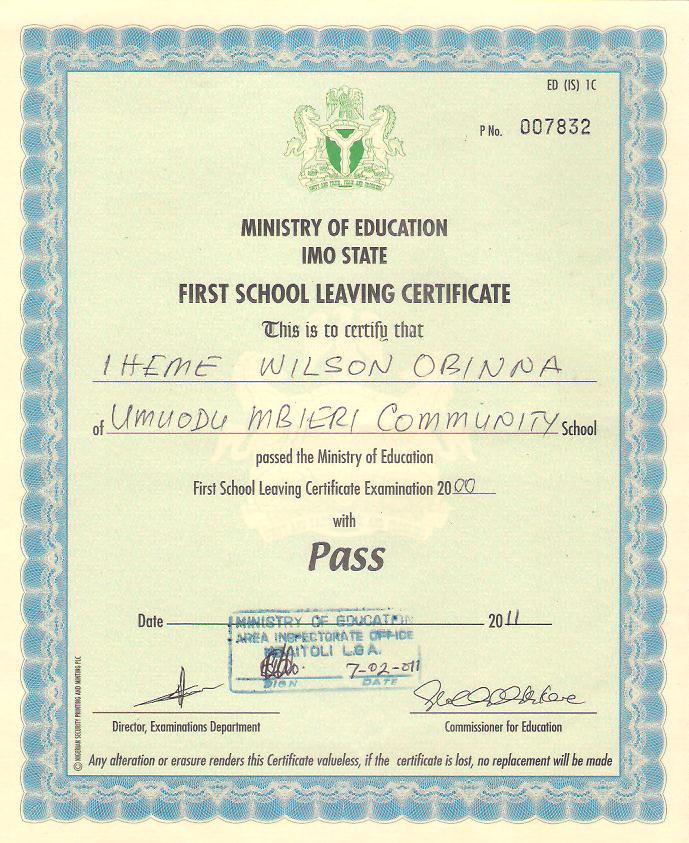 ED (IS) 1C
P No. 007832
MINISTRY OF EDUCATION
IMO STATE
FIRST SCHOOL LEAVING CERTIFICATE
This is to certify that
IHEME WILSON OBINNA
of UMUODU MBIERI COMMUNITY School
passed the Ministry of Education
First School Leaving Certificate Examination 2000
with
Pass
Date 2011
MINISTRY OF EDUCATION
AREA INSPECTORATE OFFICE
MBAITOLI L.G.A.
7-02-011
SIGN DATE
Director, Examinations Department
Commissioner for Education
© NIGERIAN SECURITY PRINTING AND MINTING PLC
Any alteration or erasure renders this Certificate valueless, if the certificate is lost, no replacement will be made